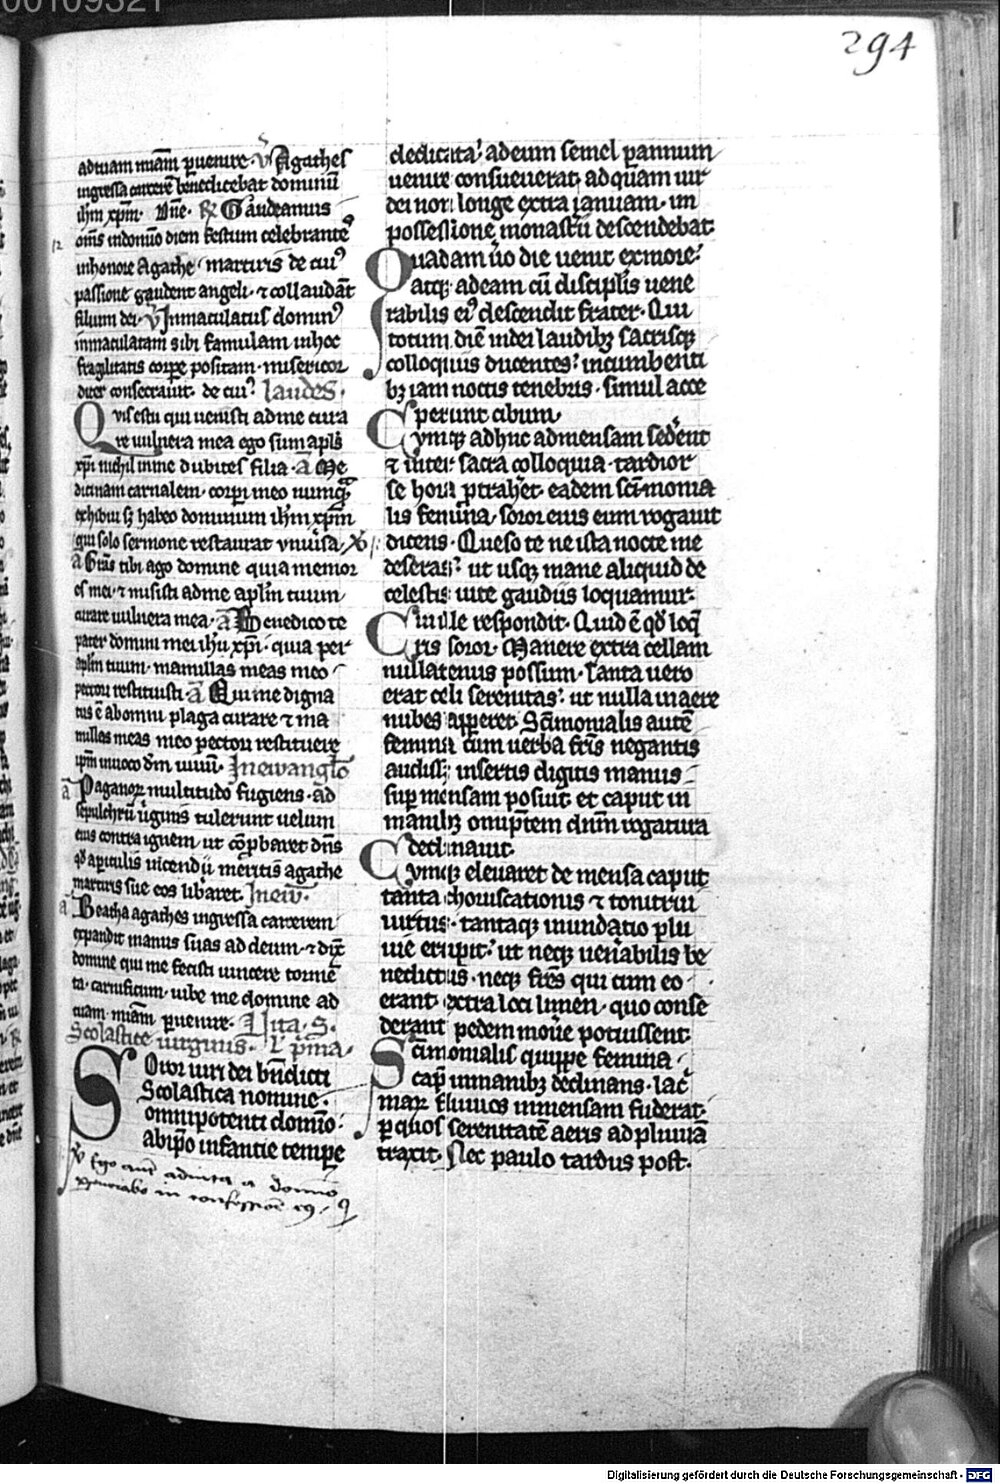 00109321
294
adtuam miam̄ ꝑuenire. v̉ Agathes
ingressa carcerē benedicebat dominū
ihm̄ xpm̄. Vn̄e. ℞ Gaudeamus
om̄s indomīo diem festum celebrantes
inhonore Agathe martiris de cuiꝰ
passione gaudent angeli. ⁊ collaudāt
filium dei. v̉ Inmaculatus dominꝰ
inmaculatam sibi famulam inhoc
fragilitatis corꝑe positam. misericor
diter consecrauit. de cuiꝰ. laudes.
Qvis es tu qui uenisti adme cura
re uulnera mea ego sum apl̄s
xp̄i nichil inme dubites filia. a᷃ Me
dicinam carnalem. corpi meo numqᷓ
exhibui sꝫ habeo dominum ihm̄ xpm̄
qui solo sermone restaurat vniūsa.
a᷃ Gr̄as tibi ago domine quia memor
es mei. ⁊ misisti adme apl̄m tuum
curare uulnera mea. a᷃ Benedico te
pater domini mei ihū xp̄i. quia per
apl̄m tuum. mamillas meas meo
pectori restituisti. a᷃ Qui me digna
tus ē abomni plaga curare ⁊ ma
millas meas meo pectori restituere
ip̄m inuoco dm̄ uiuū. Inewangl̄o
a᷃ Paganoꝝ multitudo fugiens. ad
sepulchrū ūginis tulerunt uelum
eius contra ignem. ut cōꝓbaret dn̄s
qd̓ aꝑiculis incendij meritis agathe
martiris sue eos libaret. Ineiū.
a᷃ Beatha agathes ingressa carcerem
expandit manus suas ad deum. ⁊ dix̄
domine qui me fecisti uincere tormē
ta. carnificum. iube me domine ad
tuam. miam̄ ꝑuenire. Vita. S.
Scolastice uirginis. l᷃ p̓ma.
Soror uiri dei bn̄dicti
Scolastica nomine.
omnipotenti domīo.
abip̄o infantie temꝑe
v̉ Ego aut̄ adiuta a domino
ꝑseuerabo in confessione eꝯ. q̄
dedicata. adeum semel ꝑ annum
uenire consueuerat. ad quam uir
dei non longe extra ianuam. in
possessione monast̄ii descendebat.
Quadam ū̓o die uenit exmore.
atqꝫ adeam cū disciplis uene
rabilis eiꝰ descendit frater. Qui
totum diē indei laudibꝫ sacrisqꝫ
colloquiis ducentes. incumbenti
bꝫ iam noctis tenebris. simul acce
perunt cibum.
Cvmqꝫ adhuc admensam sed̓ent
⁊ inter sacra colloquia. tardior
se hora ꝓtrah̓et. eadem sc̄imonia
lis femina. soror eius eum rogauit
dicens. Queso te ne ista nocte me
deseras. ut usqꝫ mane aliquid de
celestis uite gaudiis loquamur.
Cui ille respondit. Quid ē qd̓ loq̄
ris soror. Manere extra cellam
nullatenus possum. Tanta uero
erat celi serenitas. ut nulla inaere
nubes apꝑeret. Sc̄imonialis autē
femina cum uerba fr̄is negantis
audisset. insertis digitis manus
suꝑ mensam posuit et caput in
manibꝫ omp̄tem dn̄m rogatura
declinauit.
Cvmqꝫ eleuaret de mensa caput
tanta choruscationis ⁊ tonitrui
uirtus. tantaqꝫ inundatio plu
uie erupit. ut neqꝫ uen̄abilis be
nedictus. neqꝫ fr̄es qui cum eo
erant extra loci limen. quo conse
derant pedem mou̓e potuissent.
Sc̄imonialis quippe femina
cap̄ inmanibꝫ declinans. lac̓
maꝝ fluuios inmensam fuderat.
ꝑ quos serenitatē aeris ad pluuiā
traxit. Nec paulo tardus post.
Digitalisierung gefördert durch die Deutsche Forschungsgemeinschaft - DFG